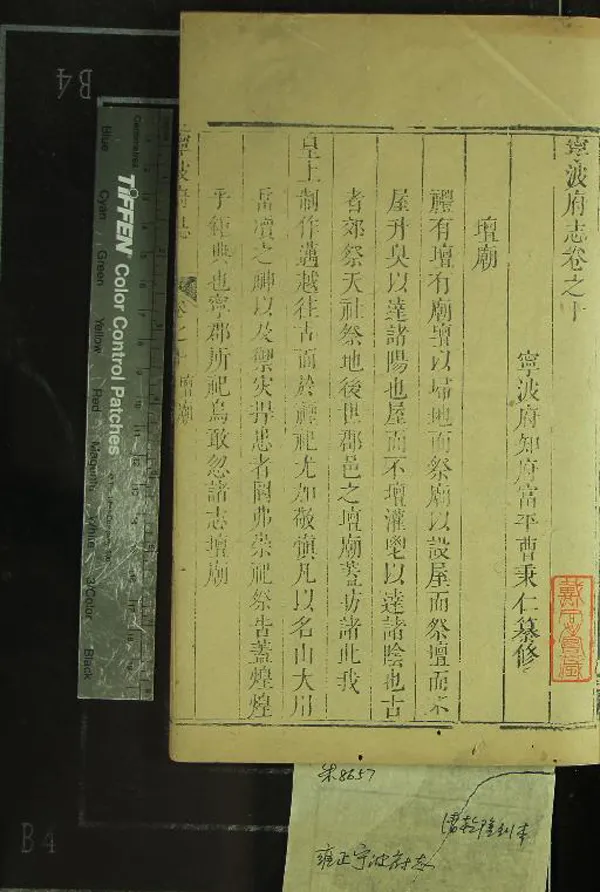 寧波府志卷之十
寧波府知府富平曹秉仁纂修
壇廟
禮有壇有廟壇以埽地而祭廟以設屋而祭壇而不
屋升臭以達諸陽也屋而不壇灌鬯以達諸陰也古
者郊祭天社祭地後世郡邑之壇廟蓋昉諸此我
皇上制作邁越往古而於禋祀尤加敬慎凡以名山大川
岳瀆之神以及禦災捍患者罔弗崇祀祭告蓋煌煌
乎鉅典也寧郡所祀烏敢忽諸志壇廟
寧波府志 卷之十 壇廟 一
B4
TIFFEN Color Control Patches
Centimetres
Blue
Cyan
Green
Yellow
Red
Magenta
White
3/Color
Black
朱8657
清乾隆刊本
雍正宁波府志
B4